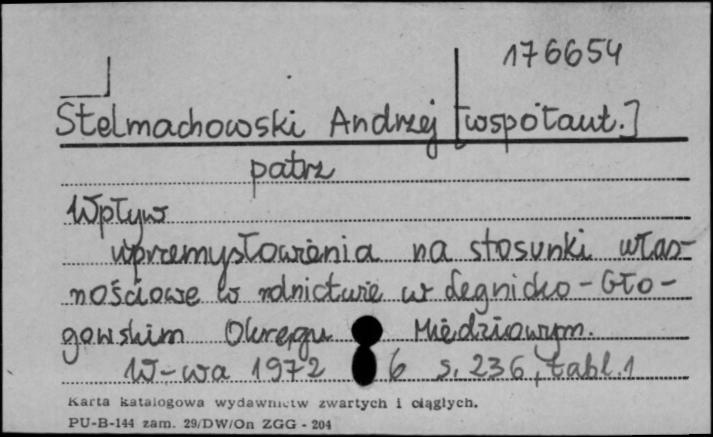 176654
Stelmachowski Andrzej [współaut.]
patrz
Wpływ
uprzemysłowienia na stosunki włas-
nościowe w rolnictwie w Legnicko-Gło-
gowskim Okręgu Miedziowym.
W-wa 1972 6 s. 236, tabl. 1
Karta katalogowa wydawnictw zwartych i ciągłych.
PU-B-144 zam. 29/DW/On ZGG - 204